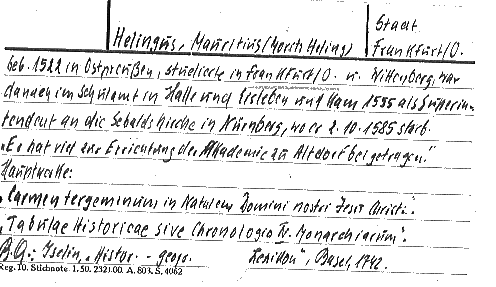 Helingus, Mauritius (Moritz Heling)
Stadt
Frankfurt/O.
Geb. 1522 in Ostpreußen, studierte in Frankfurt/O. u. Wittenberg, war
dann im Schulamt in Halle und Eisleben und kam 1555 als Superin-
tendent an die Sebaldskirche in Nürnberg, wo er 2.10.1585 starb.
"Er hat viel zur Errichtung der Akademie zu Altdorf beigetragen."
Hauptwerke:
"Carmen tergeminum in Natalem Domini nostri Jesu Christi".
"Tabulae Historicae sive Chronologia IV. Monarchiarum".
B.Q.: Iselin, "Histor. - geogr. Lexikon", Basel, 1742.
Reg. 10. Stichnote. 1. 50. 2321.00. A. 803. S. 4062